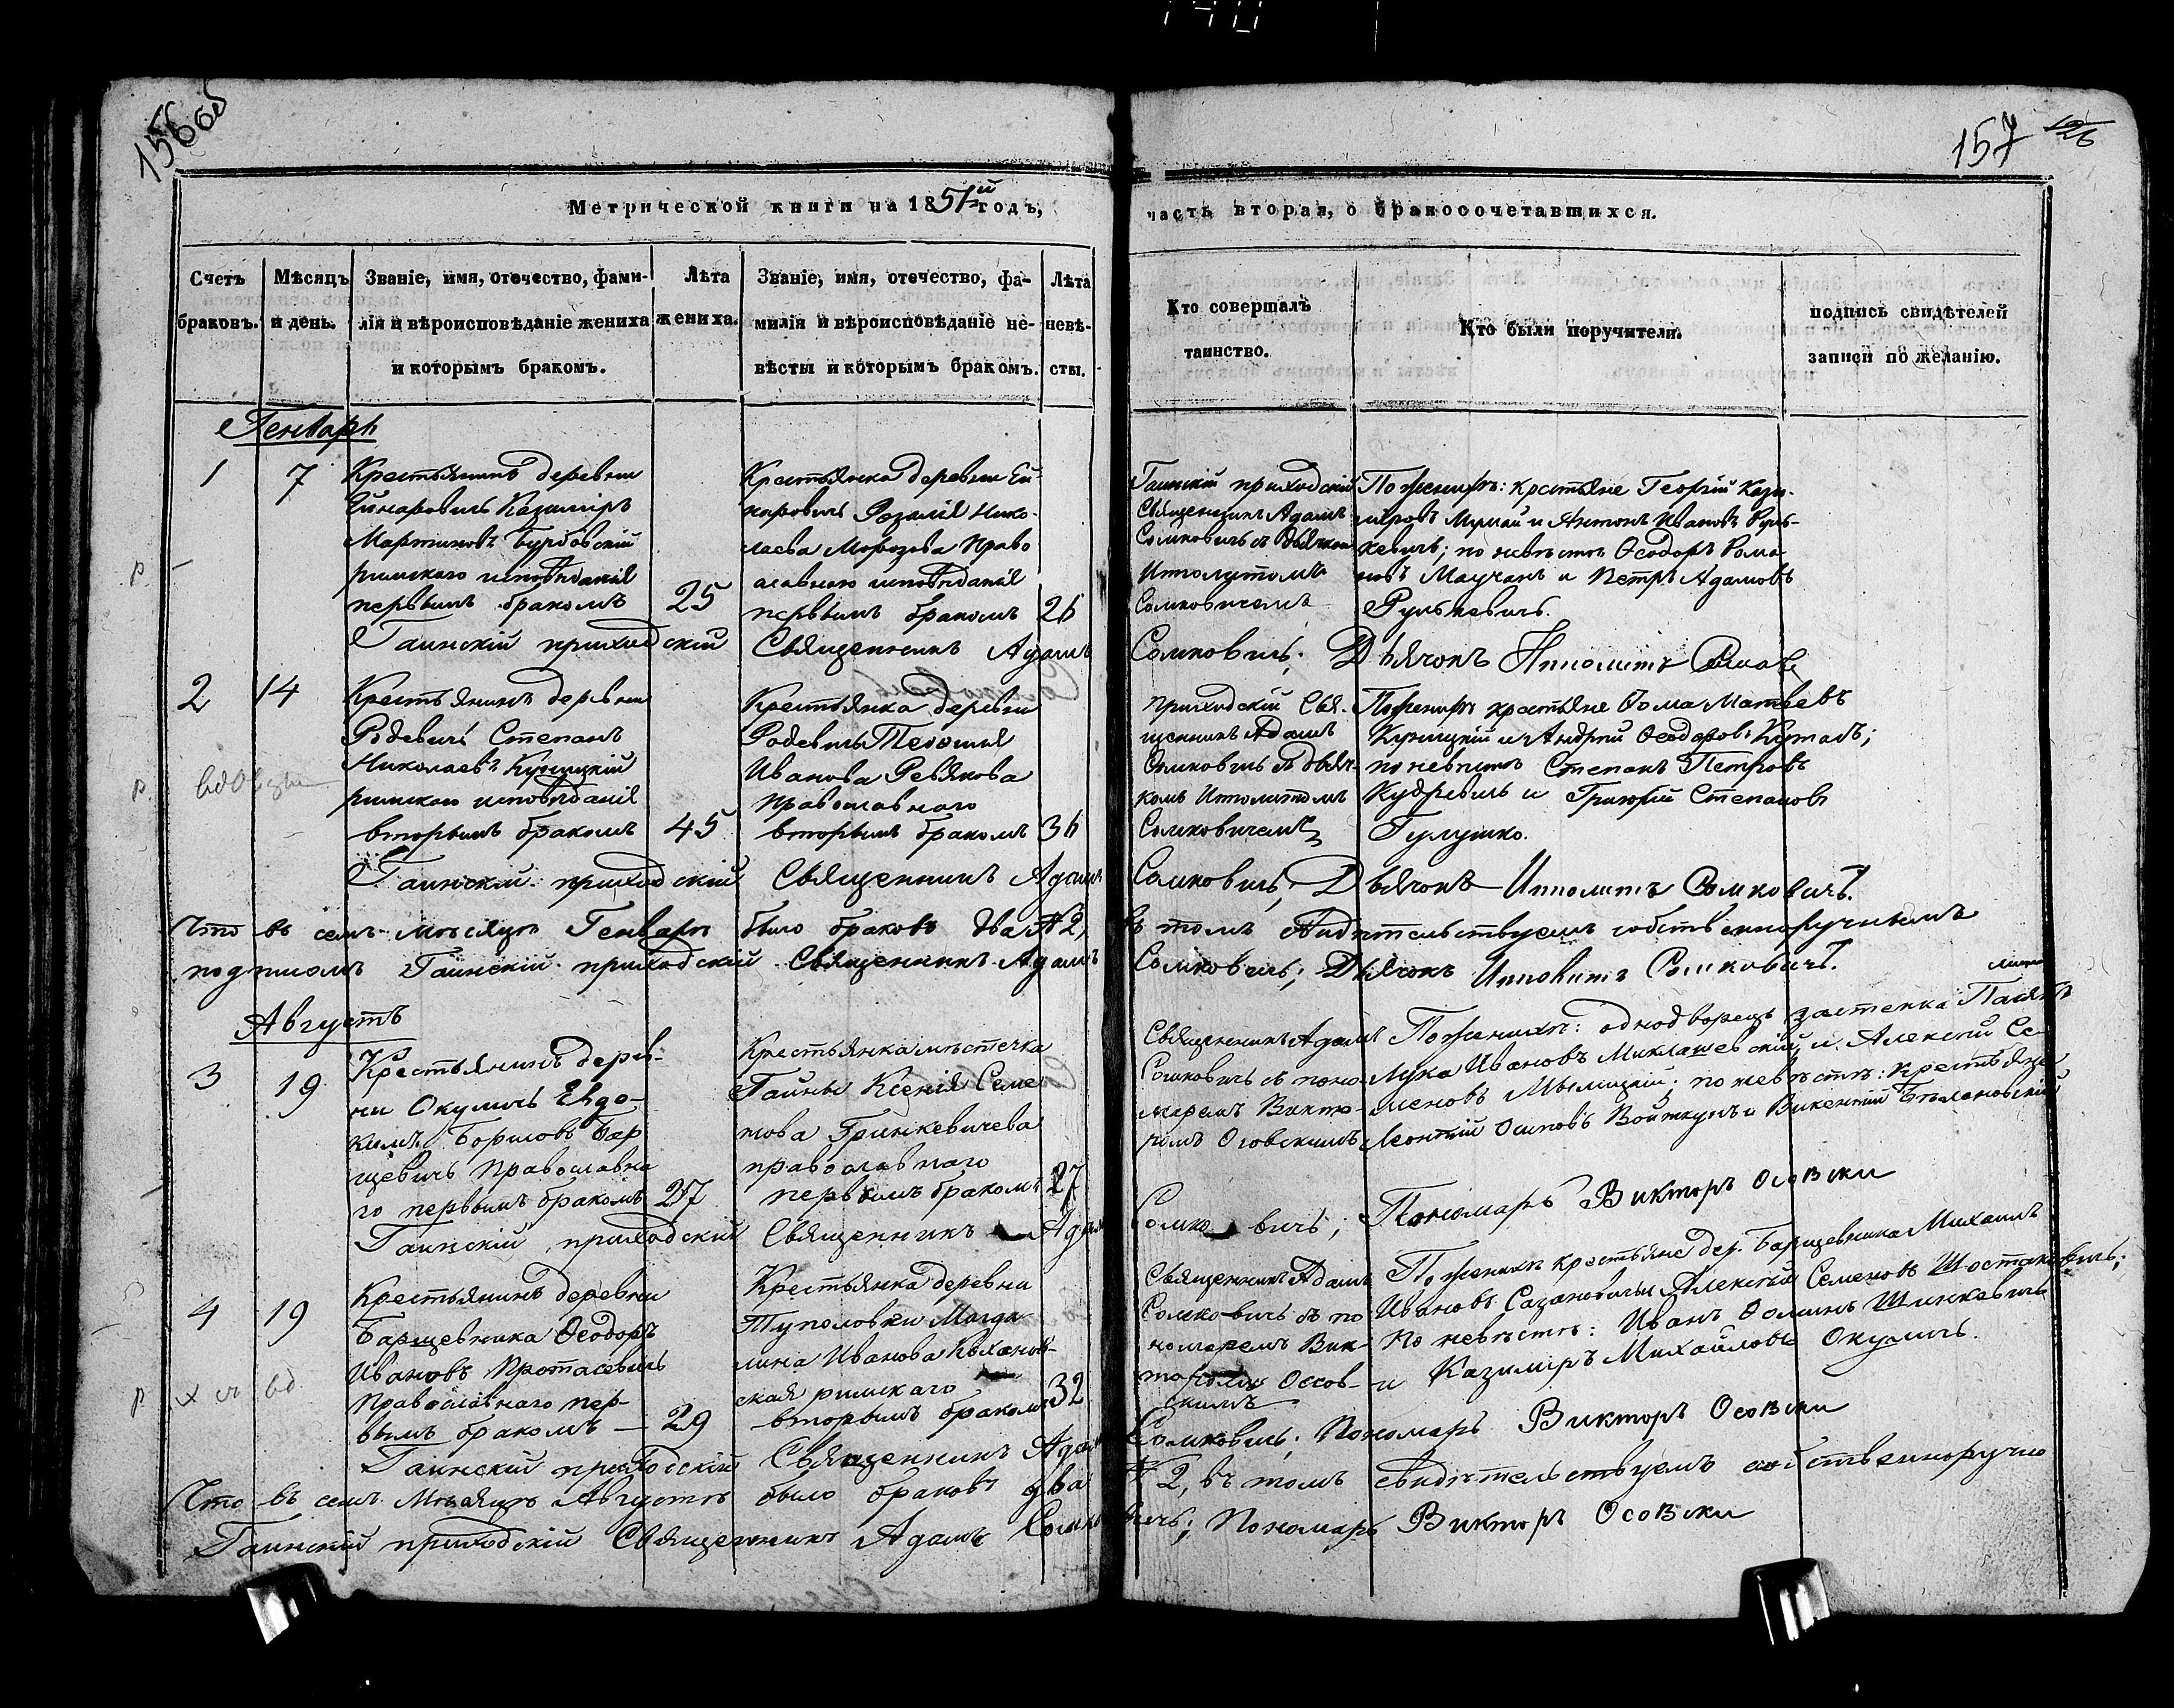 156 об
157 126
Метрической книги на 1851й годъ,
часть вторая, о бракосочетавшихся.
Счетъ браковъ.
Мѣсяцъ и день.
Званіе, имя, отечество, фами-
лія и вѣроисповѣданіе жениха
и которымъ бракомъ.
Лѣта
жениха.
Званіе, имя, отечество, фа-
милія и вѣроисповѣданіе не-
вѣсты и которымъ бракомъ.
Лѣта
невѣ-
сты.
Кто совершалъ
таинство.
Кто были поручители.
подпись свидѣтелей
записи по желанію.
Генварь
1
7
Крестьянинъ деревни
Казимiръ
Мартиновъ
римскаго исповѣданія
первымъ бракомъ
25
Крестьянка деревни Ей-
наровичь Розалія Нико-
лаева Морозова Право
славнаго исповѣданія
первымъ бракомъ
26
Гаинскій приходскій
Священникъ Адамъ
Сомковичь съ Дьячкомъ
Ипполитомъ
Сомковичемъ
По женихѣ: крестьяне Георгій Кази-
міровъ и Антонъ Ивановъ Руть-
кевичь; по невѣстѣ Ѳеодоръ Рома
новъ и Петръ Адамовъ
Рутькевичь.
Гаинскій приходскій Священникъ Адамъ Сомковичь; Дьячокъ Ипполитъ
2
14
Крестьянинъ деревни
Родевичь Степанъ
Николаевъ
римскаго исповѣданія
вторымъ бракомъ
45
Крестьянка деревни
Родевичь
Иванова Ревякова
Православнаго
вторымъ бракомъ
36
приходскій Свя-
щенникъ Адамъ
Сомковичь съ Дьяч-
комъ Ипполитомъ
Сомковичемъ
По женихѣ крестьяне Ѳома Матвѣевъ
и Андрей Ѳеодоровъ
по невѣстѣ Степанъ Петровъ
и Григорій Степановъ
Гулушко.
Гаинскій приходскій Священникъ Адамъ Сомковичь; Дьячокъ Ипполитъ Сомковичъ.
Что въ семъ мѣсяцѣ Генварѣ было браковъ два №2, въ томъ свидѣтельствуемъ собственноручнымъ
подписомъ Гаинскій приходскій Священникъ Адамъ Сомковичь; Дьячокъ Ипполитъ Сомковичъ.
Августъ
3
19
Крестьянинъ дерев-
ни Окуличь Евдо-
кимъ Борисовъ Бар
щевичь Православна
го первымъ бракомъ
27
Крестьянка мѣстечка
Гайны Ксенія Семе
нова Гринкевичева
православнаго
первымъ бракомъ
27
Священникъ Адамъ
Сомковичь съ поно-
маремъ Викто-
ромъ Осовскимъ
По женихѣ: однодворецъ застенка
Лука Ивановъ Миклашевскій и Алексій Се
меновъ; по невѣстѣ: крестьяне
Леонтій Осиповъ Войткунъ и Викентій
Гаинскій приходскій Священникъ Адамъ Сомковичь; Пономарь Викторъ Осовски
4
19
Крестьянинъ деревни
Барщевника Ѳеодоръ
Ивановъ Протасевичь
Православнаго пер-
вымъ бракомъ
29
Крестьянка деревни
Туполовки Магда
лина Иванова
ская римскаго
вторымъ бракомъ
32
Священникъ Адамъ
Сомковичь съ по
номаремъ Вик-
торомъ Оссов-
скимъ
По женихѣ крестьяне дер. Барщевника Михаилъ
Ивановъ Сазановичь и Алексѣй Семеновъ Шостаковичь;
по невѣстѣ: Иванъ Ѳоминъ Шинкевичь
и Казимиръ Михайловъ Окуличь.
Гаинскій приходскій Священникъ Адамъ Сомковичь; Пономарь Викторъ Осовски
Что въ семъ мѣсяцѣ Августѣ было браковъ два №2, въ томъ свидѣтельствуемъ собственноручно
Гаинскій приходскій Священникъ Адамъ Сомковичь; Пономарь Викторъ Осовски